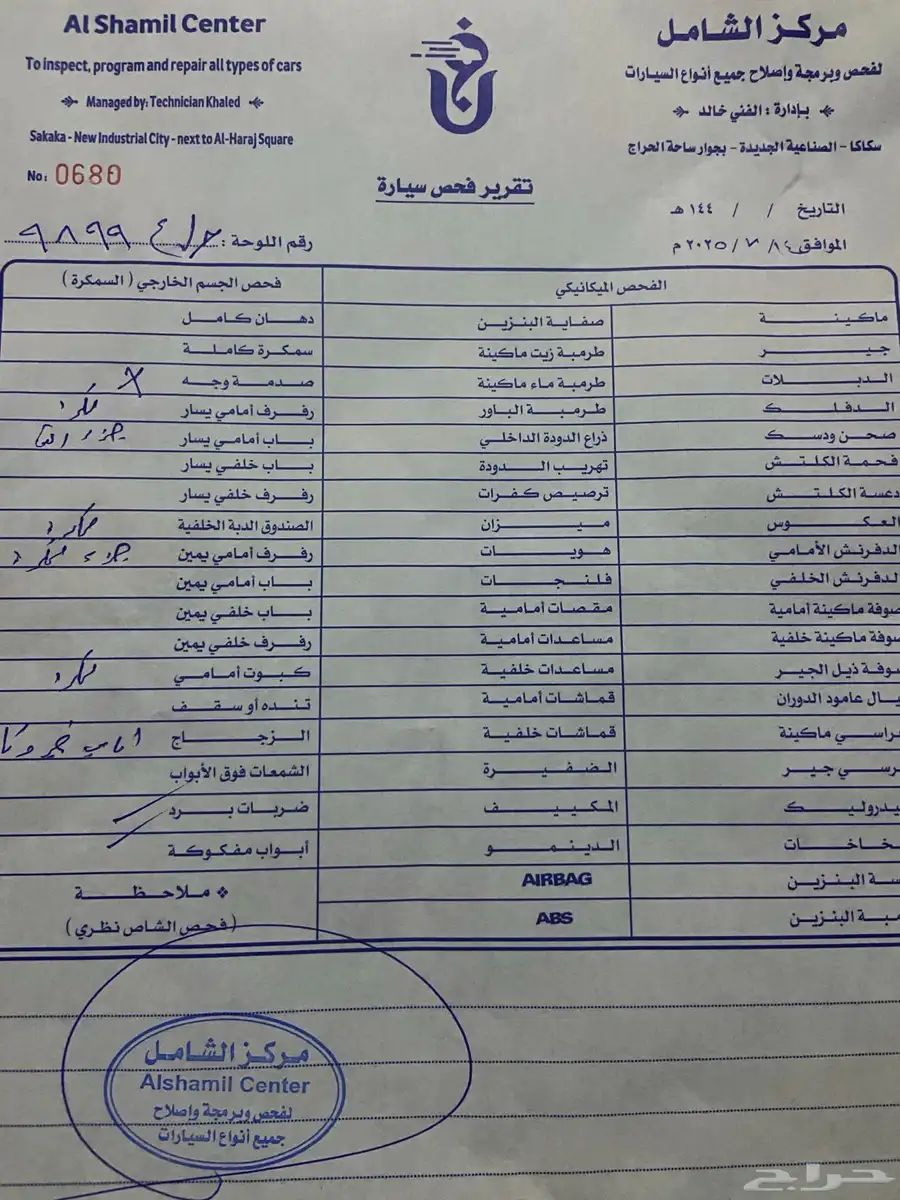 Al Shamil Center
To inspect, program and repair all types of cars
Managed by: Technician Khaled
Sakaka - New Industrial City - next to Al-Haraj Square
No: 0680
مركز الشامل
لفحص وبرمجة وإصلاح جميع أنواع السيارات
بإدارة : الفني خالد
سكاكا - الصناعية الجديدة - بجوار ساحة الحراج
تقرير فحص سيارة
التاريخ / / ١٤٤ هـ
الموافق ١٤ / ٧ / ٢٠٢٥ م
رقم اللوحة : ٩٨٩٩
الفحص الميكانيكي
فحص الجسم الخارجي ( السمكرة )
ماكينة صفاية البنزين دهان كامل
جير طرمبة زيت ماكينة سمكرة كاملة
الدبلات طرمبة ماء ماكينة صدمة وجه X
الدفلك طرمبة الباور رفرف أمامي يسار
صحن ودسك ذراع الدودة الداخلي باب أمامي يسار جزء
فحمة الكلتش تهريب الدودة باب خلفي يسار
دعسة الكلتش ترصيص كفرات رفرف خلفي يسار
العكوس ميزان الصندوق الدبة الخلفية
الدفرنش الأمامي هوبات رفرف أمامي يمين جزء
لدفرنش الخلفي فلنجات باب أمامي يمين
صوفة ماكينة أمامية مقصات أمامية باب خلفي يمين
سوفة ماكينة خلفية مساعدات أمامية رفرف خلفي يمين
سوفة ذيل الجير مساعدات خلفية كبوت أمامي
يال عامود الدوران قماشات أمامية تنده أو سقف
راسي ماكينة قماشات خلفية الزجاج
رسي جير الضفيرة الشمعات فوق الأبواب
يدروليك المكييف ضربات برد
خاخات الدينمو أبواب مفكوكة
سة البنزين AIRBAG ملاحظة
مبة البنزين ABS (فحص الشاص نظري)
مركز الشامل
Alshamil Center
لفحص وبرمجة وإصلاح
جميع أنواع السيارات
حراج